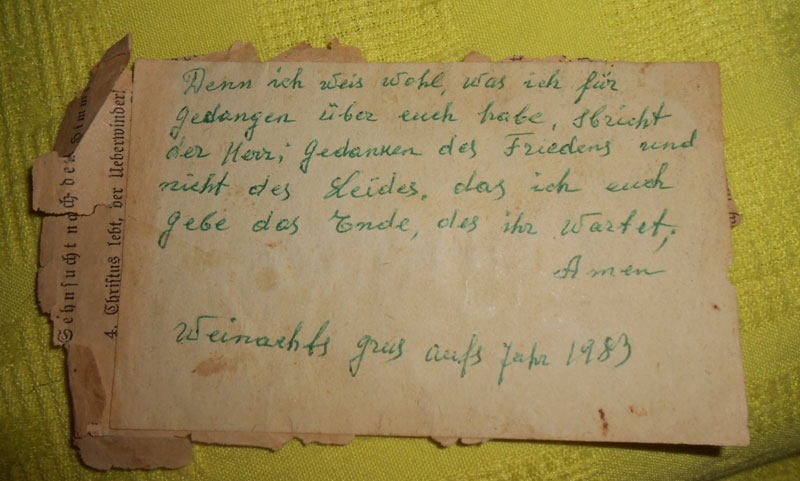 Denn ich weis wohl, was ich für
gedangen über euch habe, sbricht
der Herr; Gedanken des Friedens und
nicht des Leides, das ich euch
gebe das Ende, des ihr wartet,
Amen
Weinachts grus aufs Jahr 1983
Sehnsucht nach dem Himm
4. Christus lebt, der Ueberwinder!